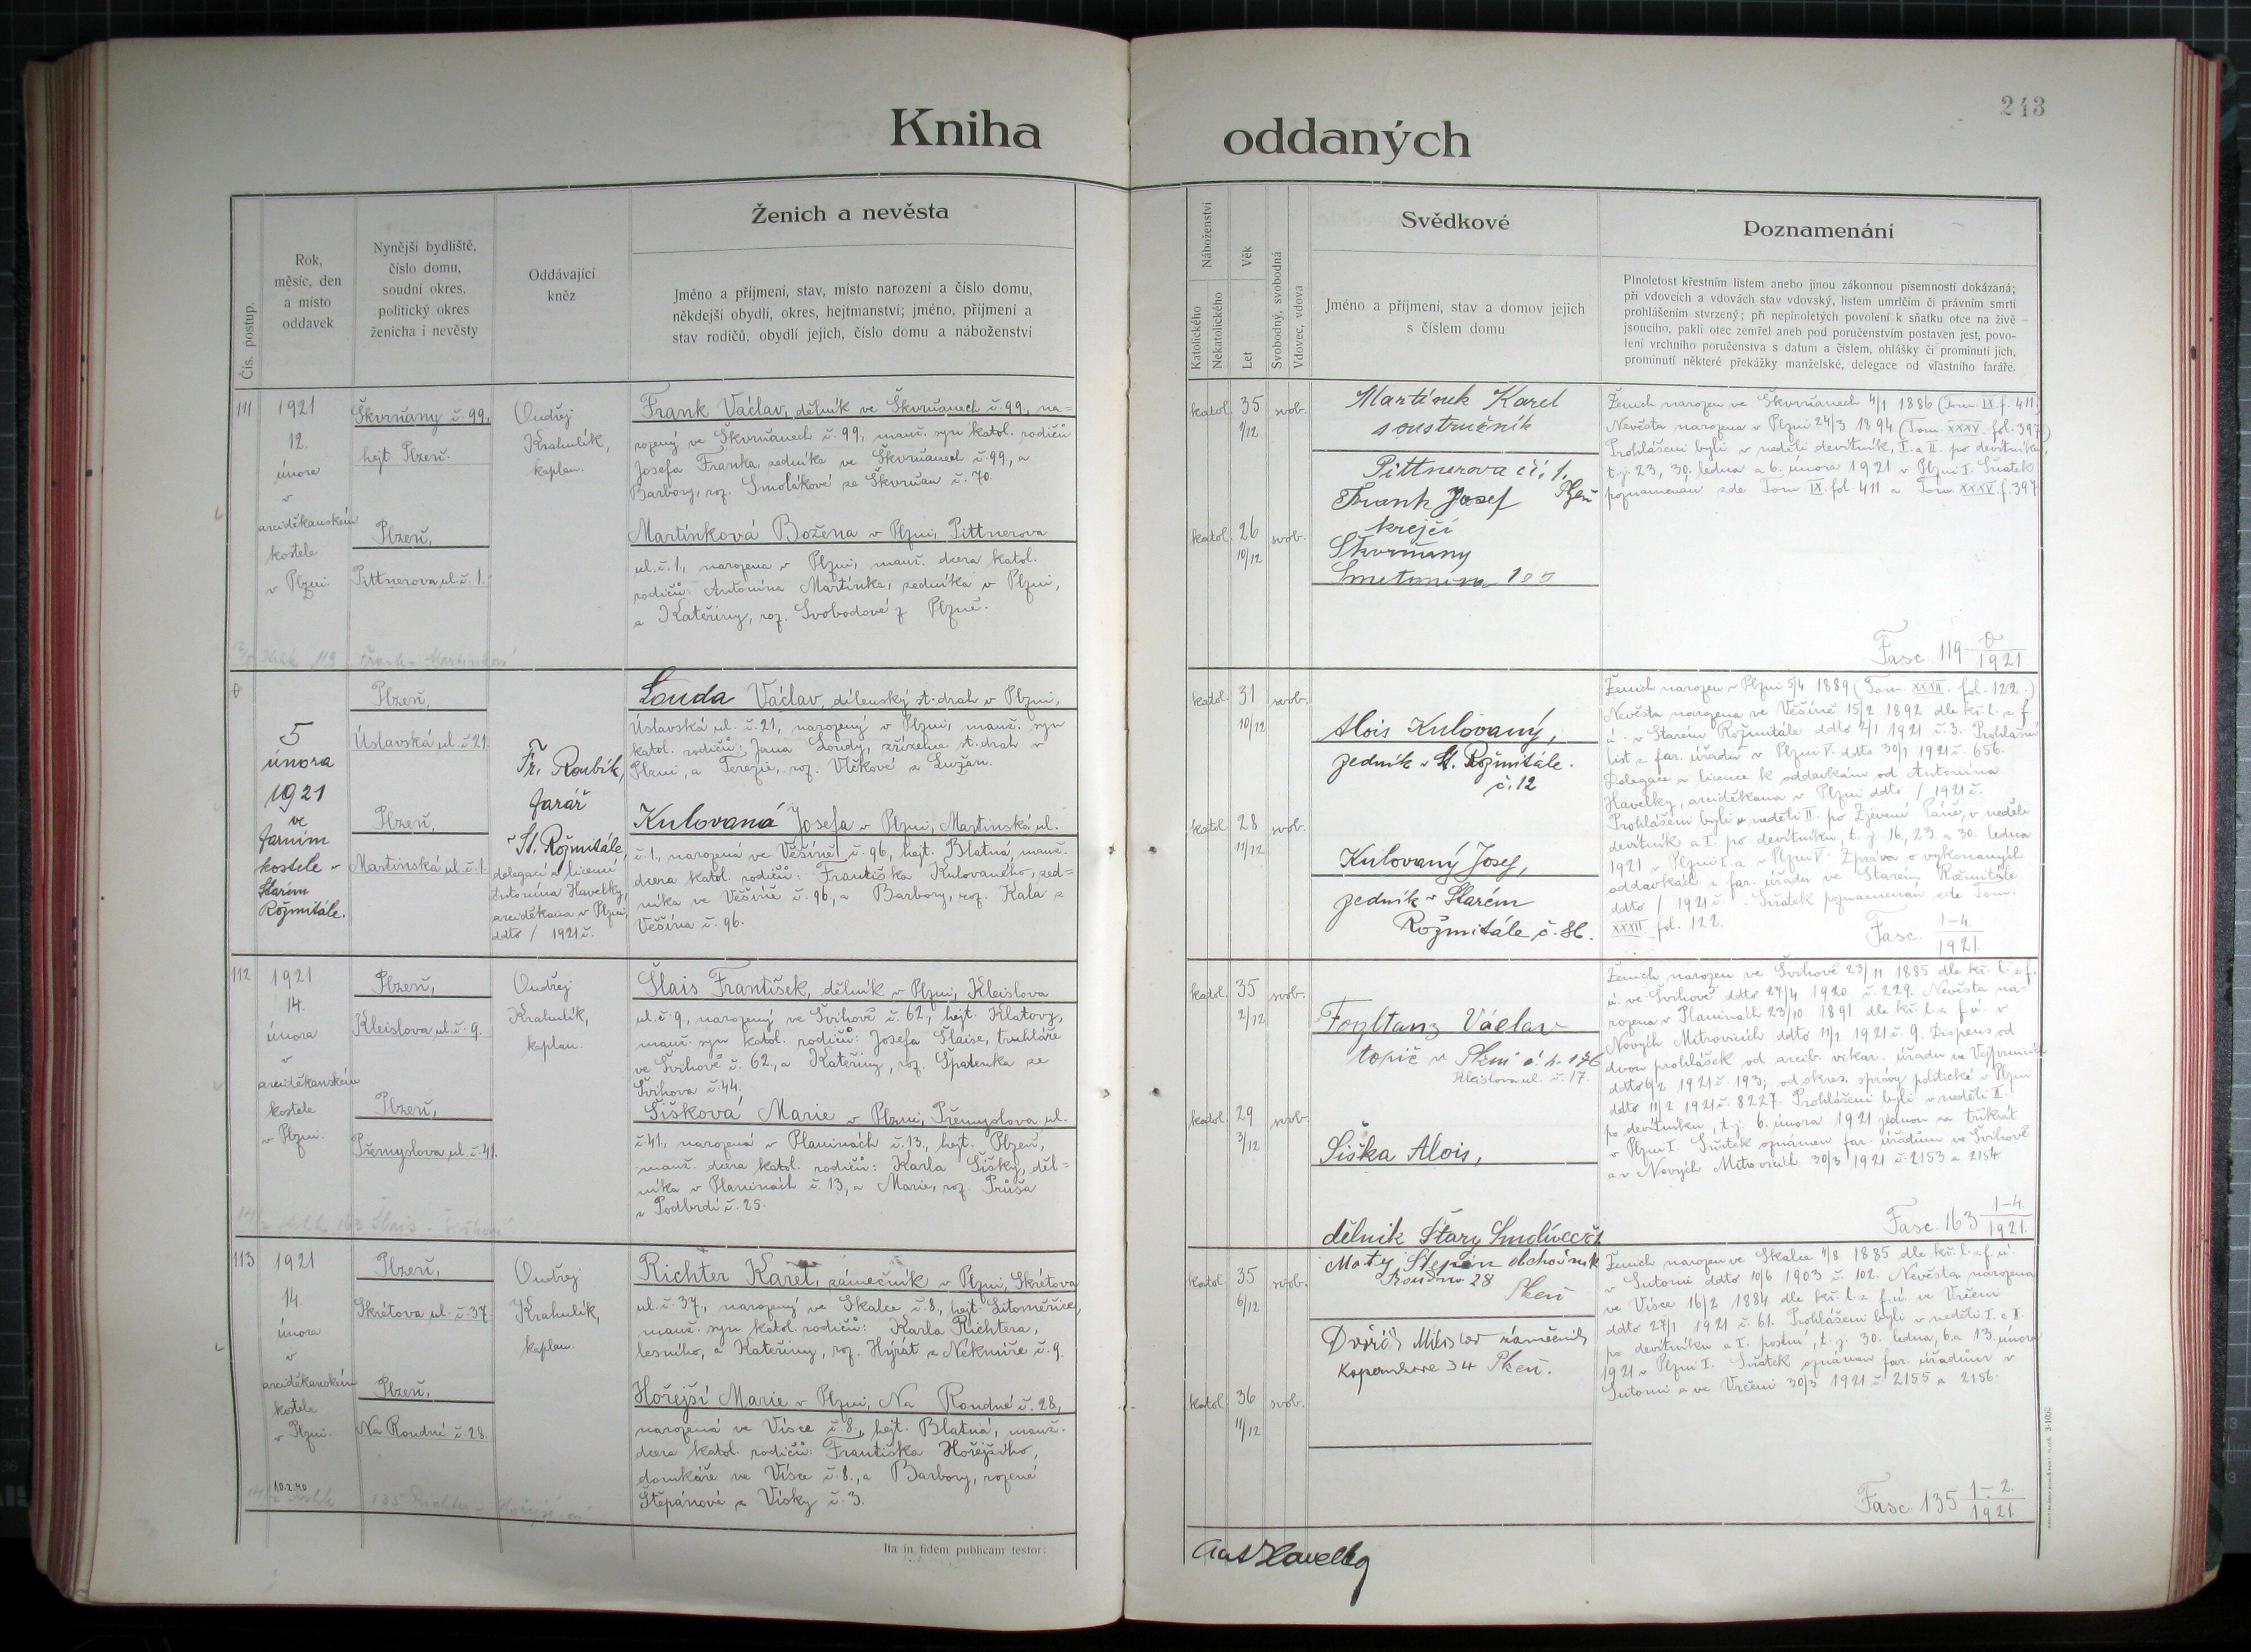 243
Kniha oddaných
Čís. postup.
Rok,
měsíc, den
a místo
oddavek
Nynější bydliště,
číslo domu,
soudní okres,
politický okres
ženicha i nevěsty
Oddávající
kněz
Ženich a nevěsta
Jméno a příjmení, stav, místo narození a číslo domu,
někdejší obydlí, okres, hejtmanství; jméno, příjmení a
stav rodičů, obydlí jejich, číslo domu a náboženství
Náboženství
Katolického
Nekatolického
Věk
Let
Svobodný, svobodná
Vdovec, vdova
Svědkové
Jméno a příjmení, stav a domov jejich
s číslem domu
Poznamenání
Plnoletost křestním listem anebo jinou zákonnou písemností dokázaná;
při vdovcích a vdovách stav vdovský, listem úmrlčím či právním smrti
prohlášením stvrzený; při neplnoletých povolení k sňatku otce na živě
jsoucího, pakli otec zemřel aneb pod poručenstvím postaven jest, povo-
lení vrchního poručenstva s datum a číslem, ohlášky či prominutí jich,
prominutí některé překážky manželské, delegace od vlastního faráře.
111
1921
12.
února
v
arciděkanském
kostele
v Plzni.
Škvrňany č. 99.
hejt. Plzeň.
Plzeň,
Pittnerova ul. č. 1.
Ondřej
Krahulík,
kaplan.
Frank Václav, dělník ve Škvrňanech č. 99, na=
rozený ve Škvrňanech č. 99, manž. syn katol. rodičů
Josefa Franka, zedníka ve Škvrňanech č. 99, a
Barbory, roz. Smolákové ze Škvrňan č. 70.
Martínková Božena v Plzni, Pittnerova
ul. č. 1., narozena v Plzni, manž. dcera katol.
rodičů: Antonína Martínka, zedníka v Plzni,
a Kateřiny, roz. Svobodové z Plzně.
119 Frank - Martínková
katol. 35 svob.
1/12
katol. 26 svob.
10/12
Martínek Karel
soustružník
Pittnerova čís. 1.
Plzeň
Frank Josef
krejčí
Škvrňany
Smetanova 100
Ženich narozen ve Škvrňanech 4/1 1886 (Tom. IX. f. 411.)
Nevěsta narozena v Plzni 24/3 1894 (Tom. XXXV. fol. 397.)
Prohlášeni byli v neděli devítník, I. a II. po devítníku,
t. j. 23, 30. ledna a 6. února 1921 v Plzni I. Sňatek
poznamenán zde Tom. IX. fol. 411 a Tom. XXXV. f. 397.
Fasc. 119 0/1921
0
5
února
1921
ve
farním
kostele
Starém
Rožmitále.
Plzeň,
Úslavská ul. č. 21.
Plzeň,
Martinská ul. č. 1.
Fr. Roubík,
farář
v St. Rožmitále,
delegací a licencí
Antonína Havelky,
arciděkana v Plzni,
ddto / 1921 č.
Louda Václav, dílenský st. drah v Plzni,
Úslavská ul. č. 21, narozený v Plzni, manž. syn
katol. rodičů: Jana Loudy, zřízence st. drah v
Plzni, a Terezie, roz. Vlčkové z Lužan.
Kulovaná Josefa v Plzni, Martinská ul.
č. 1., narozená ve Věšíně č. 96, hejt. Blatná, manž.
dcera katol. rodičů: Františka Kulovaného, zed=
níka ve Věšíně č. 96, a Barbory, roz. Kala z
Věšína č. 96.
katol. 31 svob.
10/12
katol. 28 svob.
11/12
Alois Kulovaný,
zedník v St. Rožmitále.
č. 12
Kulovaný Josef,
zedník v Starém
Rožmitále č. 86.
Ženich narozen v Plzni 5/4 1889 (Tom. XXXII. fol. 122.)
Nevěsta narozena ve Věšíně 15/2 1892 dle kř. l. z f.
ú. v Starém Rožmitále ddto 2/1 1921 č. 3. Prohlašní
list z far. úřadu v Plzni V. ddto 30/1 1921 č. 656.
Delegace a licence k oddavkám od Antonína
Havelky, arciděkana v Plzni ddto / 1921 č.
Prohlášeni byli v neděli II. po Zjevení Páně, v neděli
devítník a I. po devítníku, t. j. 16., 23. a 30. ledna
1921 v Plzni I. a v Plzni V. Zpráva o vykonaných
oddavkách z far. úřadu ve Starém Rožmitále
ddto / 1921 č. Sňatek poznamenán zde Tom.
XXXII. fol. 122.
Fasc. 1-4./1921.
112
1921
14.
února
v
arciděkanském
kostele
v Plzni.
Plzeň,
Kleislova ul. č. 9.
Plzeň,
Přemyslova ul. č. 41.
Ondřej
Krahulík,
kaplan.
Šlais František, dělník v Plzni, Kleislova
ul. č. 9., narozený ve Švihově č. 62, hejt. Klatovy,
manž. syn katol. rodičů: Josefa Šlaise, truhláře
ve Švihově č. 62, a Kateřiny, roz. Špatenka ze
Švihova č. 44.
Šišková Marie v Plzni, Přemyslova ul.
č. 41, narozená v Planinách č. 13., hejt. Plzeň,
manž. dcera katol. rodičů: Karla Šišky, děl=
níka v Planinách č. 13, a Marie, roz. Průša
v Podbrdí č. 25.
163 Šlais - Šišková
katol. 35 svob.
2/12
katol. 29 svob.
3/12
Fogltanz Václav
topič v Plzni č. p. 176
Kleislova ul. č. 17.
Šiška Alois,
dělník Starý Smolivec
Ženich narozen ve Švihově 23/11 1885 dle kř. l. z f.
ú. ve Švihově ddto 24/4 1920 č. 229. Nevěsta na-
rozena v Planinách 23/10 1891 dle kř. l. z f. ú. v
Nových Mitrovicích ddto 11/1 1921 č. 9. Dispens od
dvou prohlášek od arcib. vikar. úřadu ve Vejprnicích
ddto 6/2 1921 č. 193; od okres. správy politické v Plzni
ddto 11/2 1921 č. 8227. Prohlášeni byli v neděli II.
po devítníku, t. j. 6. února 1921 jednou za třikrát
v Plzni I. Sňatek oznámen far. úřadům ve Švihově
a v Nových Mitrovicích 30/3 1921 č. 2153 a 2154.
Fasc. 163 1-4./1921.
113
1921
14.
února
v
arciděkanském
kostele
v Plzni.
10.2.40
Plzeň,
Skrétova ul. č. 37.
Plzeň,
Na Roudné č. 28.
Ondřej
Krahulík,
kaplan.
Richter Karel, zámečník v Plzni, Skrétova
ul. č. 37., narozený ve Skalce č. 8, hejt. Litoměřice,
manž. syn katol. rodičů: Karla Richtera,
lesního, a Kateřiny, roz. Hýrát z Nekmíře č. 9.
Hořejší Marie v Plzni, Na Roudné č. 28,
narozená ve Vísce č. 8., hejt. Blatná, manž.
dcera katol. rodičů: Františka Hořejšího,
domkáře ve Vísce č. 8., a Barbory, rozené
Štěpánové z Vísky č. 3.
135 Richter - Hořejší
katol. 35 svob.
6/12
katol. 36 svob.
11/12
Matěj Štepán obchodník
Roudna 28
Plzeň
Dvořák Miloslav zámečník
Koperníkova 34 Plzeň.
Ženich narozen ve Skalce 11/8 1885 dle kř. l. z f. ú.
v Sutomi ddto 10/6 1903 č. 102. Nevěsta narozena
ve Vísce 16/2 1884 dle kř. l. z f. ú. ve Vrčeni
ddto 27/1 1921 č. 61. Prohlášeni byli v neděli I. a II.
po devítníku a I. postní, t. j. 30. ledna, 6. a 13. února
1921 v Plzni I. Sňatek oznámen far. úřadům v
Sutomi a ve Vrčeni 30/3 1921 č. 2155 a 2156.
Fasc. 135 1-2./1921
Ita in fidem publicam testor:
Ant Havelka